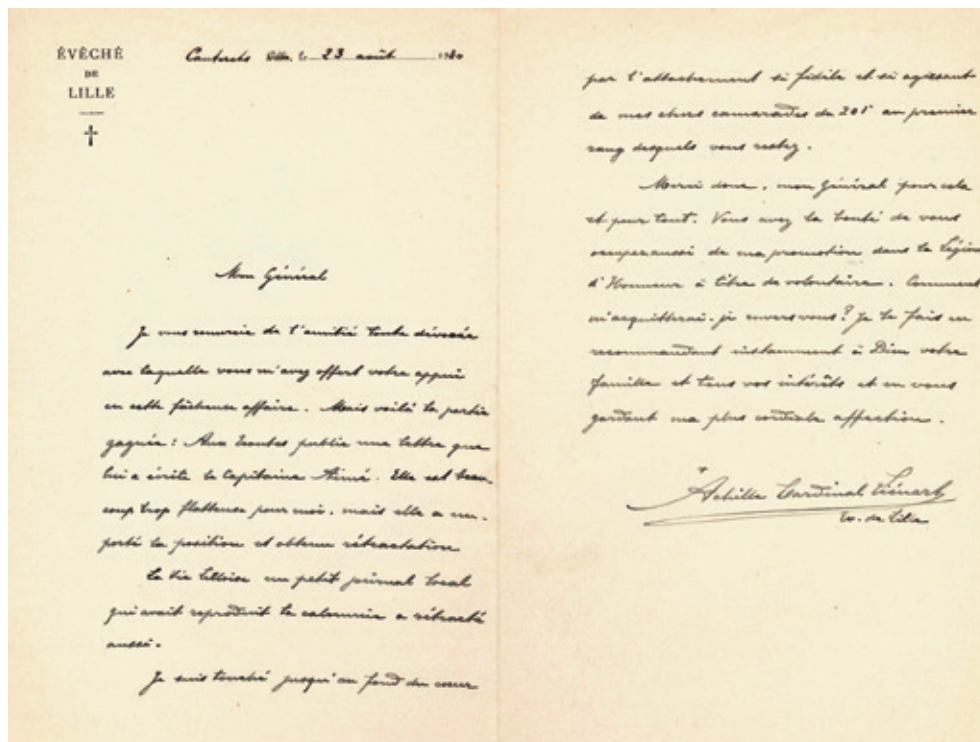 ÉVÊCHÉ
DE
LILLE
Cauterets Lille, le 23 août 19
Mon Général
Je vous remercie de l'amitié toute dévouée
avec laquelle vous m'avez offert votre appui
en cette fâcheuse affaire. Mais voilà la partie
gagnée : Aux Ecoutes publie une lettre que
lui a écrite le Capitaine Aimé. Elle est beau-
coup trop flatteuse pour moi, mais elle a em-
porté la position et obtenu rétractation
La Vie Lilloise un petit journal local
qui avait reproduit la calomnie a rétracté
aussi.
Je suis touché jusqu'au fond du cœur
par l'attachement si fidèle et si agissant
de mes chers camarades du 201e au premier
rang desquels vous restez.
Merci donc, mon Général pour cela
et pour tout. Vous avez la bonté de vous
occuper aussi de ma promotion dans la Légion
d'Honneur à titre de volontaire. Comment
m'acquitterai-je envers vous? Je le fais en
recommandant instamment à Dieu votre
famille et tous vos intérêts et en vous
gardant ma plus cordiale affection.
Achille Cardinal Liénart
Ev. de Lille